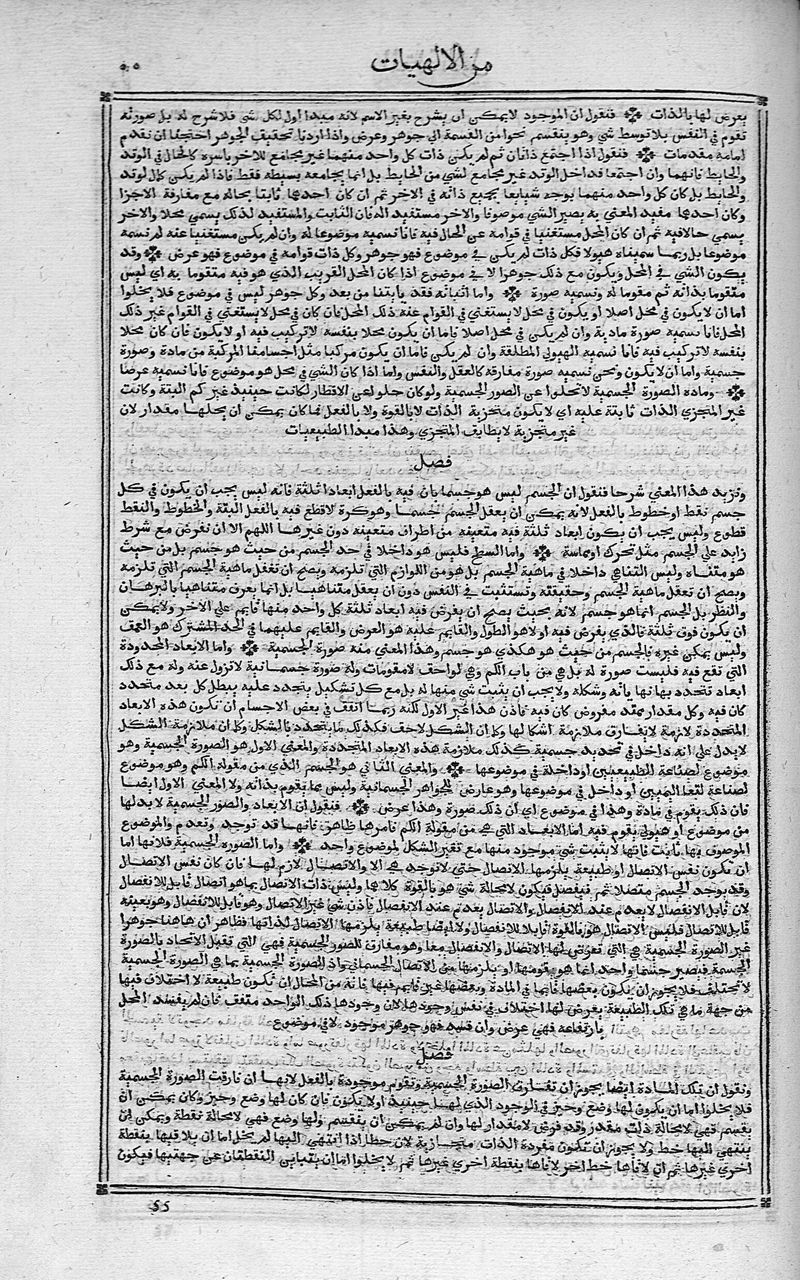 من الالهيات
٥٥
يعرض لها بالذات ❊ فنقول ان الموجود لا يمكن ان يشرح بغير الاسم لانه مبدا اول لكل شي فلا شرح له بل صورته
تقوم في النفس بلا توسط شي وهو ينقسم نحوا من القسمة الي جوهر وعرض واذا اردنا تحقيف الجوهر احتجنا ان نقدم
امامه مقدمات ❊ فنقول اذا اجتمع ذاتان ثم لم يكن ذات كل واحد منهما غير مجامع للاخر باسره كالحال في الوتد
والحايط فانهما وان اجتمعا فداخل الوتد غير مجامع لشي من الحايط بل انما يجامعه بسيطه فقط فاذا لم يكن كالوتد
والحايط بل كان كل واحد منهما يوجد شايعا بجميع ذاته في الاخر ثم ان كان احدهما ثابتا بحاله مع مفارقة الاخر
وكان احدهما مفيد المعني به يصير الشي موصوفا والاخر مستفيد اله فان الثابت والمستفيد لذلك يسمي محلا والاخر
يسمي حالا فيه ثم ان كان المحل مستغنيا في قوامه عن الحال فيه فانا نسميه موضوعا له وان لم يكن مستغنيا عنه لم نسمه
موضوعا بل ربما سميناه هيولا فكل ذات لم يكن في موضوع فهو جوهر وكل ذات قوامه في موضوع فهو عرض ❊ وقد
يكون الشي في المحل ويكون مع ذلك جوهرا لا في موضوع اذا كان المحل القريب الذي هو فيه متقوما به اي ليس
متقوما بذاته ثم مقوما له ونسميه صورة ❊ واما اثباته فقد ياتينا من بعد وكل جوهر ليس في موضوع فلا يخلوا
اما ان لا يكون في محل اصلا او يكون في محل لا يستغني في القوام عنه ذلك المحل فان كان في محل لا يستغني في القوام غير ذلك
المحل فانا نسميه صورة مادية وان لم يكن في محل اصلا فاما ان يكون محلا بنفسه لا تركيب فيه او لا يكون فان كان محلا
بنفسه لا تركيب فيه فانا نسميه الهيولي المطلقة وان لم يكن فاما ان يكون مركبا مثل اجسامنا المركبة من مادة وصورة
جسمية واما ان لا يكون ونحن نسميه صورة مفارقة كالعقل والنفس واما اذا كان الشي في محل هو موضوع فانا نسميه عرضا
❊ ومادة الصورة الجسمية لا تخلوا عن الصور الجسمية ولو كان حلو لعن الاقطار لكانت حينيذ غير كم البتة وكانت
غير المتجزي الذات ثابتة عليه اي لا يكون متجزية الذات لا بالقوة ولا بالفعل فما كان يمكن ان يحلها مقدار لان
غير متجزية لا يطابق المتجزي وهذا مبدا الطبيعيات
فصل
ونزيد هذا المعني شرحا فنقول ان الجسم ليس هو جسما بان فيه بالفعل ابعادا ثلثة فانه ليس يجب ان يكون في كل
جسم نقط او خطوط بالفعل لانه يمكن ان يعقل الجسم جسما وهو كرة لا قطع فيه بالفعل البتة والخطوط والنقط
قطوع وليس يجب ان يكون ابعاد ثلثة فيه متعينة من اطراف متعينه دون غيرها اللهم الا ان نفرض مع شرط
زايد علي الجسم مثل تحرك او مماسة ❊ واما السطح فليس هو داخلا في حد الجسم من حيث هو جسم بل من حيث
هو متناه وليس التناهي داخلا في ماهية الجسم بل هو من اللوازم التي تلزمه ويصح ان تعقل ماهية الجسم التي تلزمه
ويصح ان تعقل ماهية الجسم وحقيقته وتستثبت في النفس دون ان يعقل متناهيا بل انما يعرف متناهيا بالبرهان
والنظر بل الجسم انما هو جسم لانه بحيث يصح ان يفرض فيه ابعاد ثلثة كل واحد منها قايم علي الاخر ولا يمكن
ان يكون فوق ثلثة فالذي يفرض فيه اولا هو الطول والقايم عليه هو العرض والقايم عليهما في الحد المشترك هو العمق
وليس يمكن غيره فالجسم من حيث هو هكذي هو جسم وهذا المعني منه صورة الجسمية ❊ واما الابعاد المحدودة
التي تقع فيه فليست صورة له بل هي من باب الكم وهي لواحف لا مقومات وله صورة جسمانية لا تزول عنه وله مع ذلك
ابعاد تتحدد بها نهاياته وشكله ولا يجب ان يثبت شي منها له بل مع كل تشكيل يتجدد عليه يبطل كل بعد متحدد
كان فيه وكل مقدار محدد مفروض كان فيه فاذن هذا غير الاول لكنه ربما اتفف في بعض الاجسام ان تكون هذه الابعاد
المتحددة لازمة لا تفارق ملازمة اشكالها وكما ان الشكل لاحف فكذلك ما يتحدد بالشكل وكما ان ملازمة الشكل
لا يدل علي انه داخل في تحديد جسمية كذلك ملازمة هذه الابعاد المتحددة والمعني الاول هو الصورة الجسمية وهو
موضوع لصناعة الطبيعيين او داخلة في موضوعها ❊ والمعني الثاني هو الجسم الذي من مقولة الكم وهو موضوع
لصناعة التعاليميين او داخل في موضوعها وهو عارض للجواهر الجسمانية وليس مما يقوم بذاته ولا المعني الاول ايضا
فان ذلك يقوم في مادة وهذا في موضوع اي ان ذلك صورة وهذا عرض ❊ فنقول ان الابعاد والصور الجسمية لا بد لها
من موضوع او هيولي يقوم فيه اما الابعاد التي هي من مقولة الكم فامرها ظاهر فانها قد توجد وتعدم والموضوع
الموصوف بها ثابت فانها لا يثبت شي موجود منها مع تغير الشكل لموضوع واحد ❊ واما الصورة الجسمية فلانها اما
ان تكون نفس الاتصال او طبيعة يلزمها الاتصال حتي لا توجد هي الا والاتصال لازم لها فان كان نفس الاتصال
وقد يوجد الجسم متصلا ثم ينفصل فيكون لا محالة شي هو بالقوة كلاهما وليس ذات الاتصال بما هو اتصال قابل للانفصال
لان قابل الانفصال لا يعدم عند الانفصال والاتصال يعدم عند الانفصال فاذن شي غير الاتصال وهو قابل للانفصال وهو بعينه
قابل للاتصال فليس الاتصال هو بالقوة قابلا للانفصال ولا ايضا طبيعة يلزمها الاتصال لذاتها فظاهر ان هاهنا جوهرا
غير الصورة الجسمية هي التي تعرض لها الاتصال والانفصال معا وهو مقارن للصور الجسمية فهي التي تقبل الاتحاد بالصورة
الجسمية فيصير جسما واحد انما هو قومها او يلزمها من الاتصال الجسماني واذ الصورة الجسمية بما هي الصورة الجسمية
لا تختلف فلا يجوز ان يكون بعضها قايما في المادة وبعضها غير قايم فيها فانه من المحال ان تكون طبيعة لا اختلاف فيها
من جهة ما هي تلك الطبيعة يعرض لها اختلاف في نفس وجودها لان وجودها ذلك الواحد متفف فان لم يفسد المحل
بارتفاعه فهي عرض وان فسد فهو جوهر موجود لا في موضوع
فصل
ونقول ان تلك المادة ايضا يجوز ان تفارق الصورة الجسمية وتقوم موجودة بالفعل لانها ان فارقت الصورة الجسمية
فلا يخلوا اما ان يكون لها وضع وحيز في الوجود الذي لها حينيذ او لا يكون فان كان لها وضع وحيز وكان يمكن ان
ينقسم فهي لا محالة ذات مقدار وقد فرض لا مقدار لها وان لم يمكن ان ينقسم ولها وضع فهي لا محالة نقطة ويمكن ان
ينتهي اليها خط ولا يجوز ان تكون مفردة الذات منحازية لان خطا اذا انتهي اليها لم يخل اما ان يلاقيها بنقطة
اخري غيرها ثم ان لاقاها خط اخر لاقاها بنقطة اخري غيرها ثم لا يخلوا اما ان يتباين النقطتان عن جهتيها فيكون
55